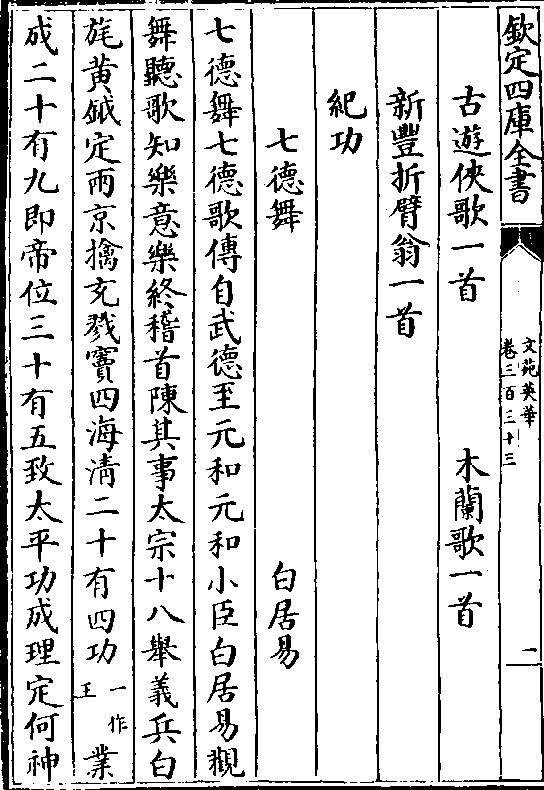 欽定四庫全書
文苑英華
卷三百三十三
二
古遊俠歌一首 木蘭歌一首
新豐折臂翁一首
紀功
七德舞 白居易
七德舞七德歌傳自武德至元和元和小臣白居易觀
舞聽歌知樂意樂終稽首陳其事太宗十八舉義兵白
旄黃鉞定兩京擒充戮竇四海清二十有四功一作王業
成二十有九即帝位三十有五致太平功成理定何神